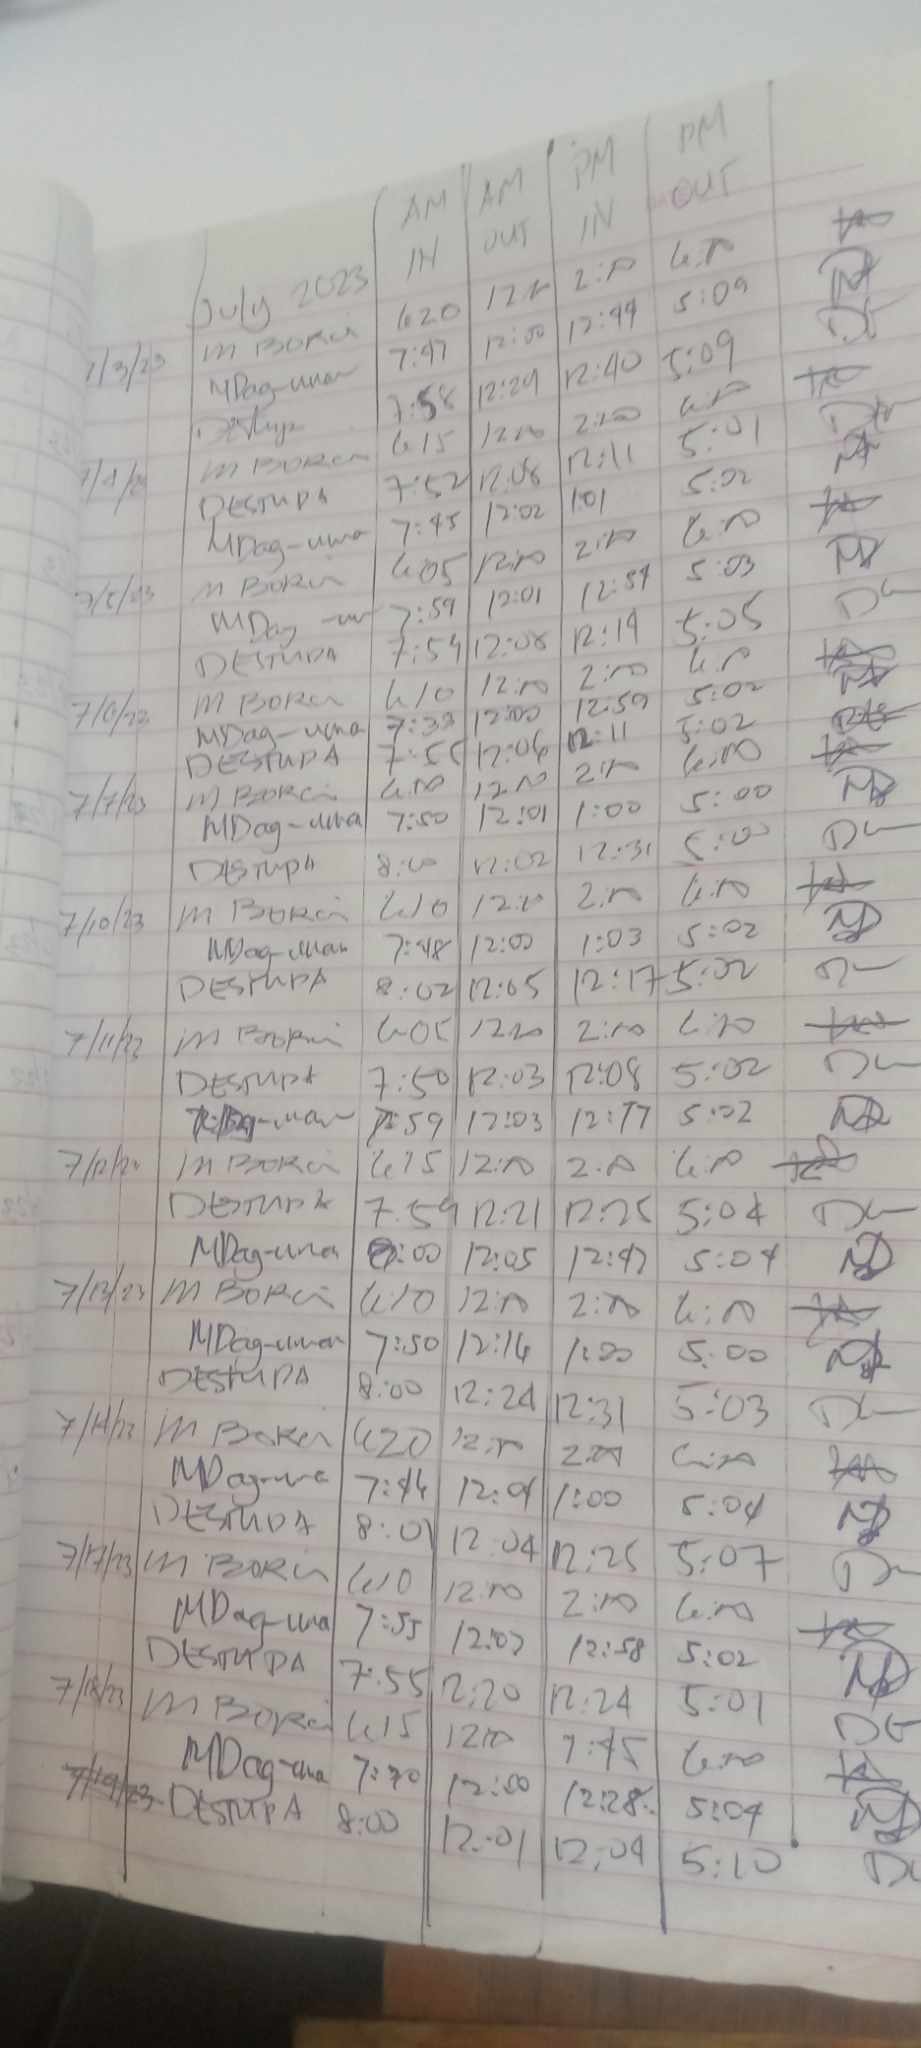 AM AM PM PM
July 2023 IN OUT IN OUT
7/3/23 M BORCI 620 12:00 2:00 6:00
MDag-uman 7:47 12:00 12:44 5:09
7:58 12:29 12:40 5:09
M BORCI 615 12:00 2:00 6:00
DESTUPA 7:52 12:08 12:11 5:01
MDag-uma 7:45 12:02 1:01 5:02
M BORCI 6:05 12:00 2:00 6:00
MDag-um 7:59 12:01 12:54 5:03
DESTUPA 7:54 12:08 12:19 5:05
M BORCI 610 12:00 2:00 6:00
MDag-uma 7:33 12:00 12:59 5:02
DESTUPA 7:55 12:06 12:11 5:02
7/7/23 M BORCI 6:00 12:00 2:00 6:00
MDag-uma 7:50 12:01 1:00 5:00
DESTUPA 8:00 12:02 12:31 5:00
7/10/23 M BORCI 610 12:00 2:00 6:00
MDag-uman 7:48 12:00 1:03 5:02
DESTUPA 8:02 12:05 12:17 5:02
7/11/23 M BORCI 605 12:00 2:00 6:00
DESTUPA 7:50 12:03 12:08 5:02
7:59 12:03 5:02
M BORCI 615 12:00 2:00 6:00
DESTUPA 7:59 12:21 12:25 5:04
MDag-uma 8:00 12:05 12:47 5:04
7/13/23 M BORCI 610 12:00 2:00 6:00
MDag-uman 7:50 12:16 1:00 5:00
DESTUPA 8:00 12:24 12:31 5:03
7/14/23 M BORCI 620 12:00 2:00 6:00
MDag-uma 7:46 12:04 1:00 5:04
DESTUPA 8:01 12:04 12:25 5:07
7/17/23 M BORCI 610 12:00 2:00 6:00
MDag-uma 7:55 12:02 12:58 5:02
DESTUPA 7:55 12:20 12:24 5:01
7/18/23 M BORCI 615 12:00 6:00
MDag-uma 12:00 12:28 5:04
7/19/23 DESTUPA 8:00 12:01 12:04 5:10